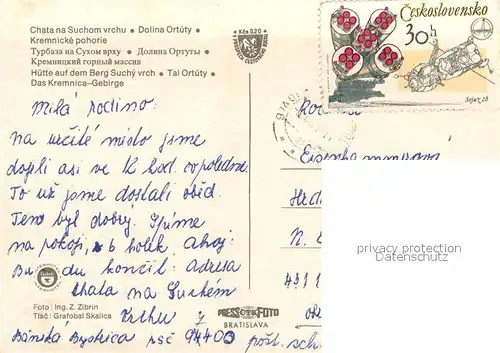 Chata na Suchom vrchu • Dolina Ortúty •
Kremnické pohorie
Турбаза на Сухом врху • Долина Ортуты •
Кремницкий горный массив
Hütte auf dem Berg Suchý vrch • Tal Ortúty •
Das Kremnica-Gebirge
Kčs 0,20
Československo
30 h
Sojuz 28
Milá rodino:
na určité místo jsme
dojeli asi ve 12 hod. odpoledne.
To už jsme dostali oběd.
Ten byl dobrý. Spíme
na pokoji, 6 holek Ahoj.
Bu du končit: Adresa
Chata na Suchém
Vrchu
Báňská Bystrica psč 94400 pošt. sch
Foto: Ing. Z. Zibrín
Tlač: Grafobal Skalica
PRESSFOTO
BRATISLAVA
Rod
Hrd
N.
4311
ok
privacy protection
Datenschutz